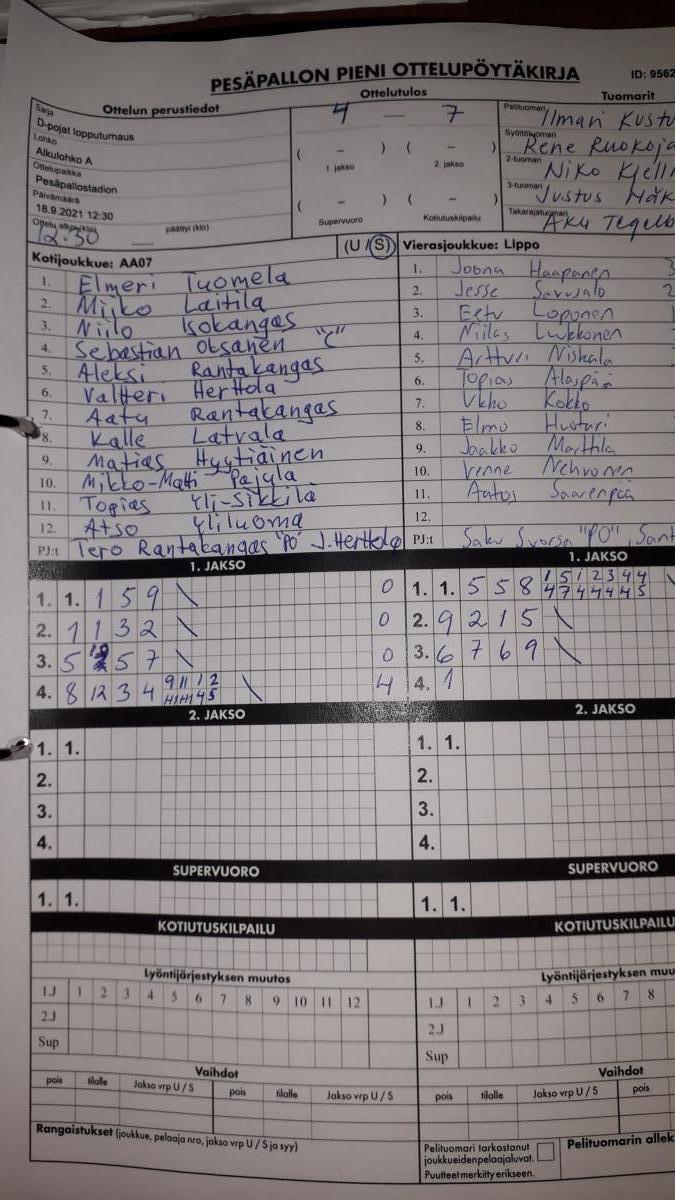 PESÄPALLON PIENI OTTELUPÖYTÄKIRJA
ID: 9562
Ottelun perustiedot
Ottelutulos
Tuomarit
Sarja
D-pojat lopputurnaus
Lohko
Alkulohko A
Ottelupaikka
Pesäpallostadion
Päivämäärä
18.9.2021 12:30
Ottelu alkoi (klo)
12.30
päättyi (klo)
4 — 7
( – ) ( – )
1. jakso
2. jakso
( – ) ( – )
Supervuoro
Kotiutuskilpailu
Pelituomari
Ilmari Kustu
Syöttötuomari
Rene Ruokoja
2-tuomari
Niko Kjell
3-tuomari
Justus Mäk
Takarajatuomari
Aku Tegelb
Kotijoukkue: AA07
(U / S)
1. Elmeri Tuomela
2. Miiko Laitila
3. Niilo Isokangas
4. Sebastian Oksanen "C"
5. Aleksi Rantakangas
6. Valtteri Herttola
7. Aatu Rantakangas
8. Kalle Latvala
9. Matias Hyytiäinen
10. Mikko-Matti Pajula
11. Topias Yli-Sikkilä
12. Atso Yliluoma
PJ:t Tero Rantakangas "PO" J. Herttola
Vierasjoukkue: Lippo
1. Joona Haapanen 3
2. Jesse Savusalo 2
3. Eetu Loponen
4. Niilas Luukkonen
5. Artturi Niskala
6. Topias Alaspää
7. Ukko Kokko
8. Elmo Husturi
9. Jaakko Marttila
10. Venne Nehvonen
11. Aatos Saarenpää
12.
PJ:t Saku Svorsa "PO", Sant
1. JAKSO
1. 1. 1 5 9 \ 0
2. 1 1 3 2 \ 0
3. 5 10 5 7 \ 0
4. 8 12 3 4 9 11 1 2 \ 4
2. JAKSO
1. 1.
2.
3.
4.
SUPERVUORO
1. 1.
KOTIUTUSKILPAILU
Lyöntijärjestyksen muutos
1.J 1 2 3 4 5 6 7 8 9 10 11 12
2.J
Sup
Vaihdot
pois tilalle Jakso vrp U / S pois tilalle Jakso vrp U / S
Rangaistukset (joukkue, pelaaja nro, jakso vrp U / S ja syy)
1. JAKSO
1. 1. 5 5 8 1 5 1 2 3 4 4 \
4 7 4 4 4 4 5
2. 9 2 1 5 \
3. 6 7 6 9 \
4. 1
2. JAKSO
1. 1.
2.
3.
4.
SUPERVUORO
1. 1.
KOTIUTUSKILPAILU
Lyöntijärjestyksen muu
1.J 1 2 3 4 5 6 7 8
2.J
Sup
Vaihdot
pois tilalle Jakso vrp U / S pois
Pelituomari tarkastanut
joukkueiden pelaajaluvat.
Puutteet merkitty erikseen.
Pelituomarin allek